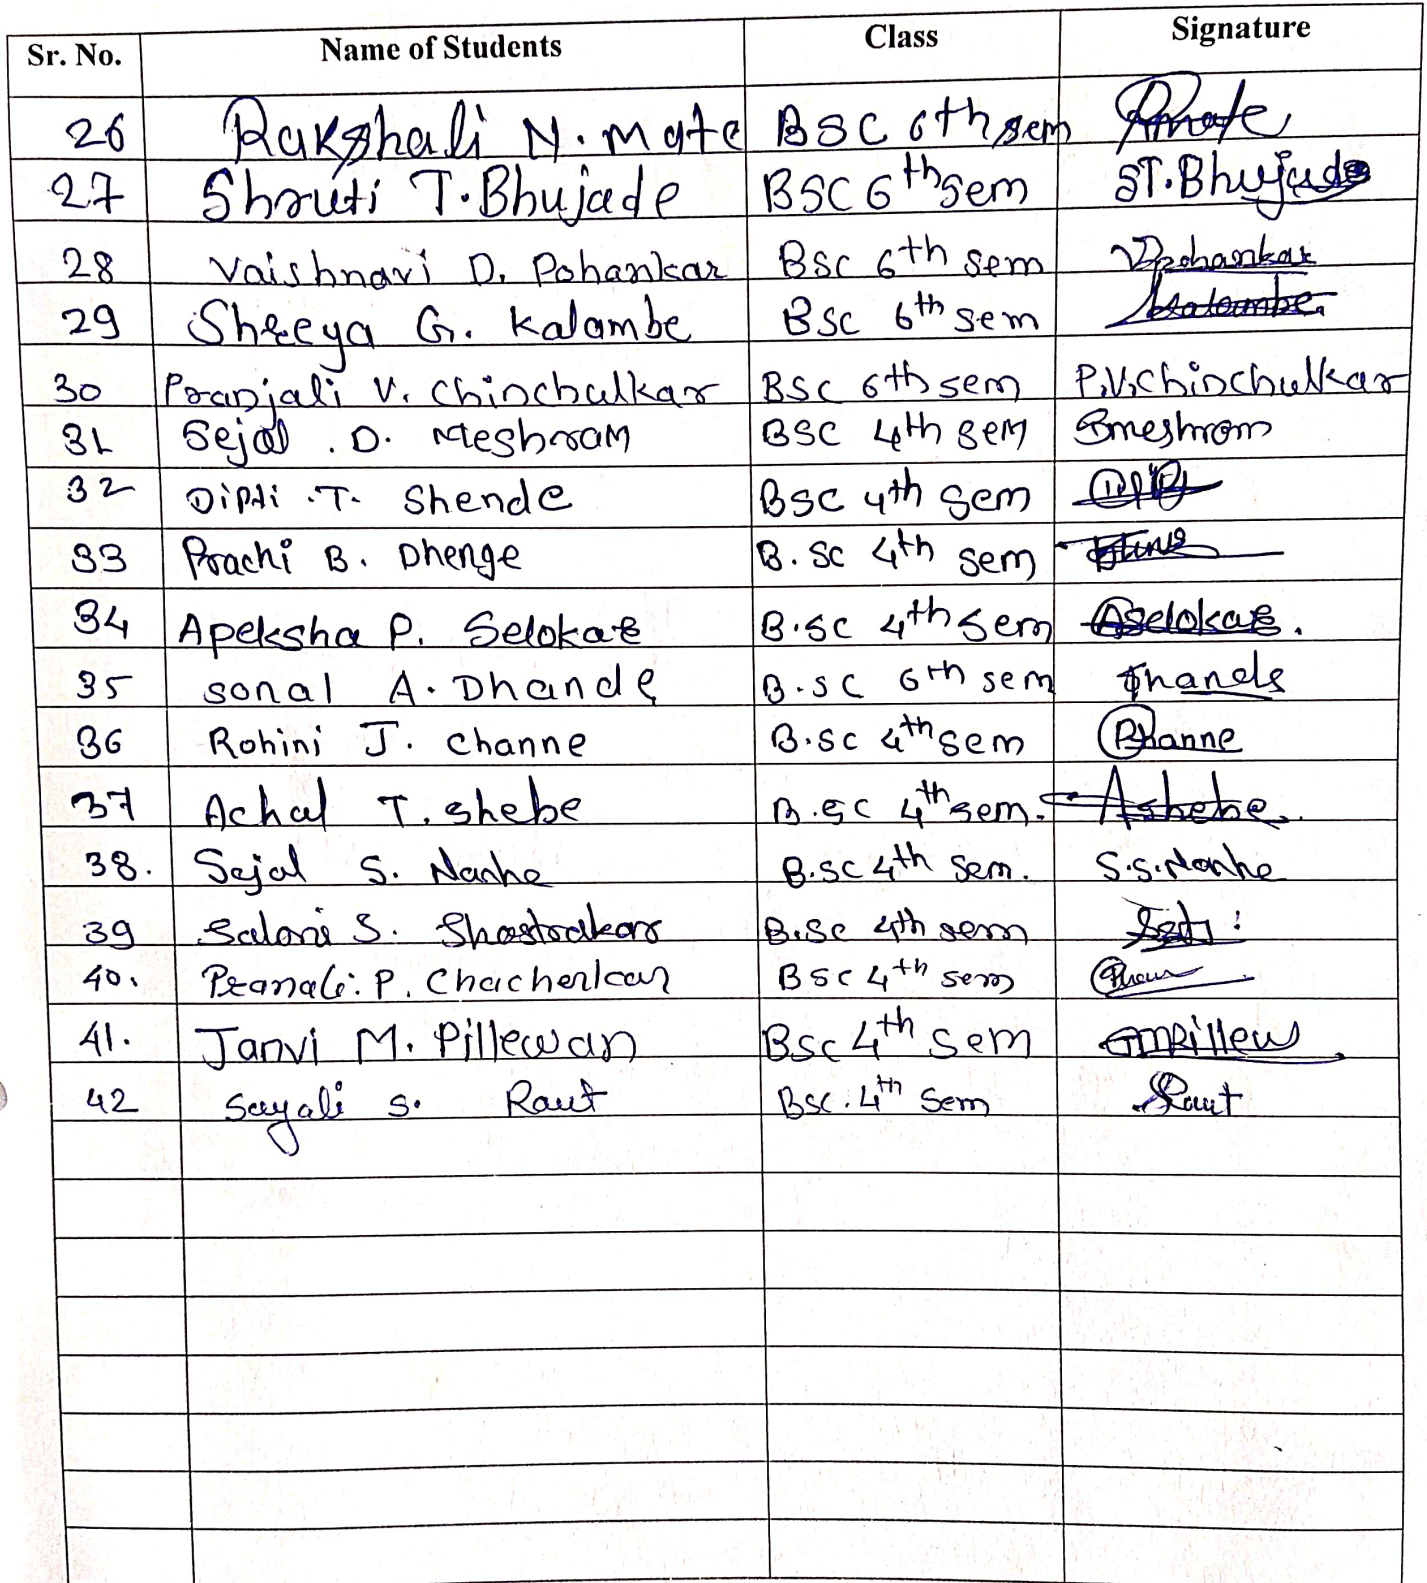 Sr. No. Name of Students Class Signature
26 Rakshali N. Mate BSC 6th sem Rmate
27 Shruti T. Bhujade BSC 6th sem ST.Bhujade
28 Vaishnavi D. Pohankar BSC 6th sem VDpohankar
29 Shreeya G. Kalambe BSC 6th sem Kalambe
30 Pranjali V. Chinchulkar BSC 6th sem P.V.Chinchulkar
31 Sejal . D. Meshram BSC 4th sem Smeshram
32 Dipti .T. Shende BSC 4th Sem
33 Prachi B. Dhenge B.SC 4th Sem
34 Apeksha P. Selokar B.SC 4th Sem Aselokar.
35 sonal A. Dhande B.SC 6th sem Dhande
36 Rohini J. Channe B.SC 4th Sem Rhanne
37 Achal T. shebe B.SC 4th sem. Ashebe.
38. Sejal S. Nanhe B.SC 4th Sem. S.S.Nanhe
39 Saloni S. Shastrakar B.Sc 4th sem
40. Pranali. P. Chacherkar BSC 4th sem
41. Janvi M. Pillewan BSC 4th Sem JMPillew
42 Sayali S. Raut BSC. 4th Sem SRaut